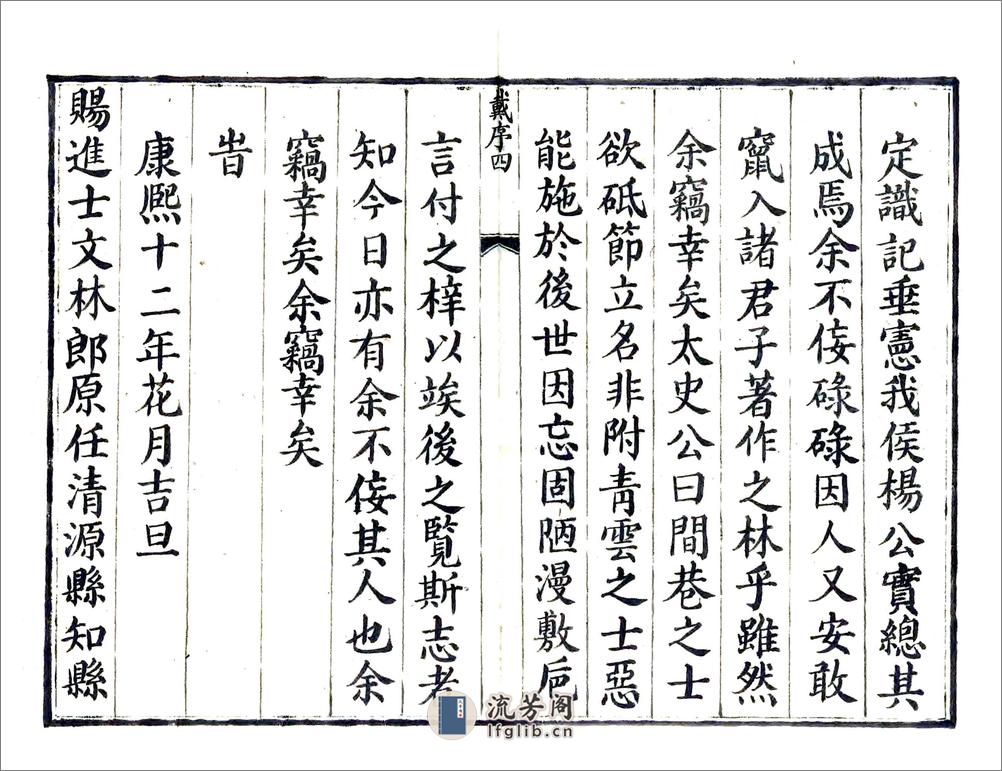 定識記垂憲我侯楊公實總其
成焉余不佞碌碌因人又安敢
竄入諸君子著作之林乎雖然
余竊幸矣太史公曰閭巷之士
欲砥節立名非附青雲之士惡
能施於後世因忘固陋漫敷卮
戴序四
言付之梓以竢後之覽斯志者
知今日亦有余不佞其人也余
竊幸矣余竊幸矣
旹
康熙十二年花月吉旦
賜進士文林郎原任清源縣知縣
流芳阁
lfglib.cn